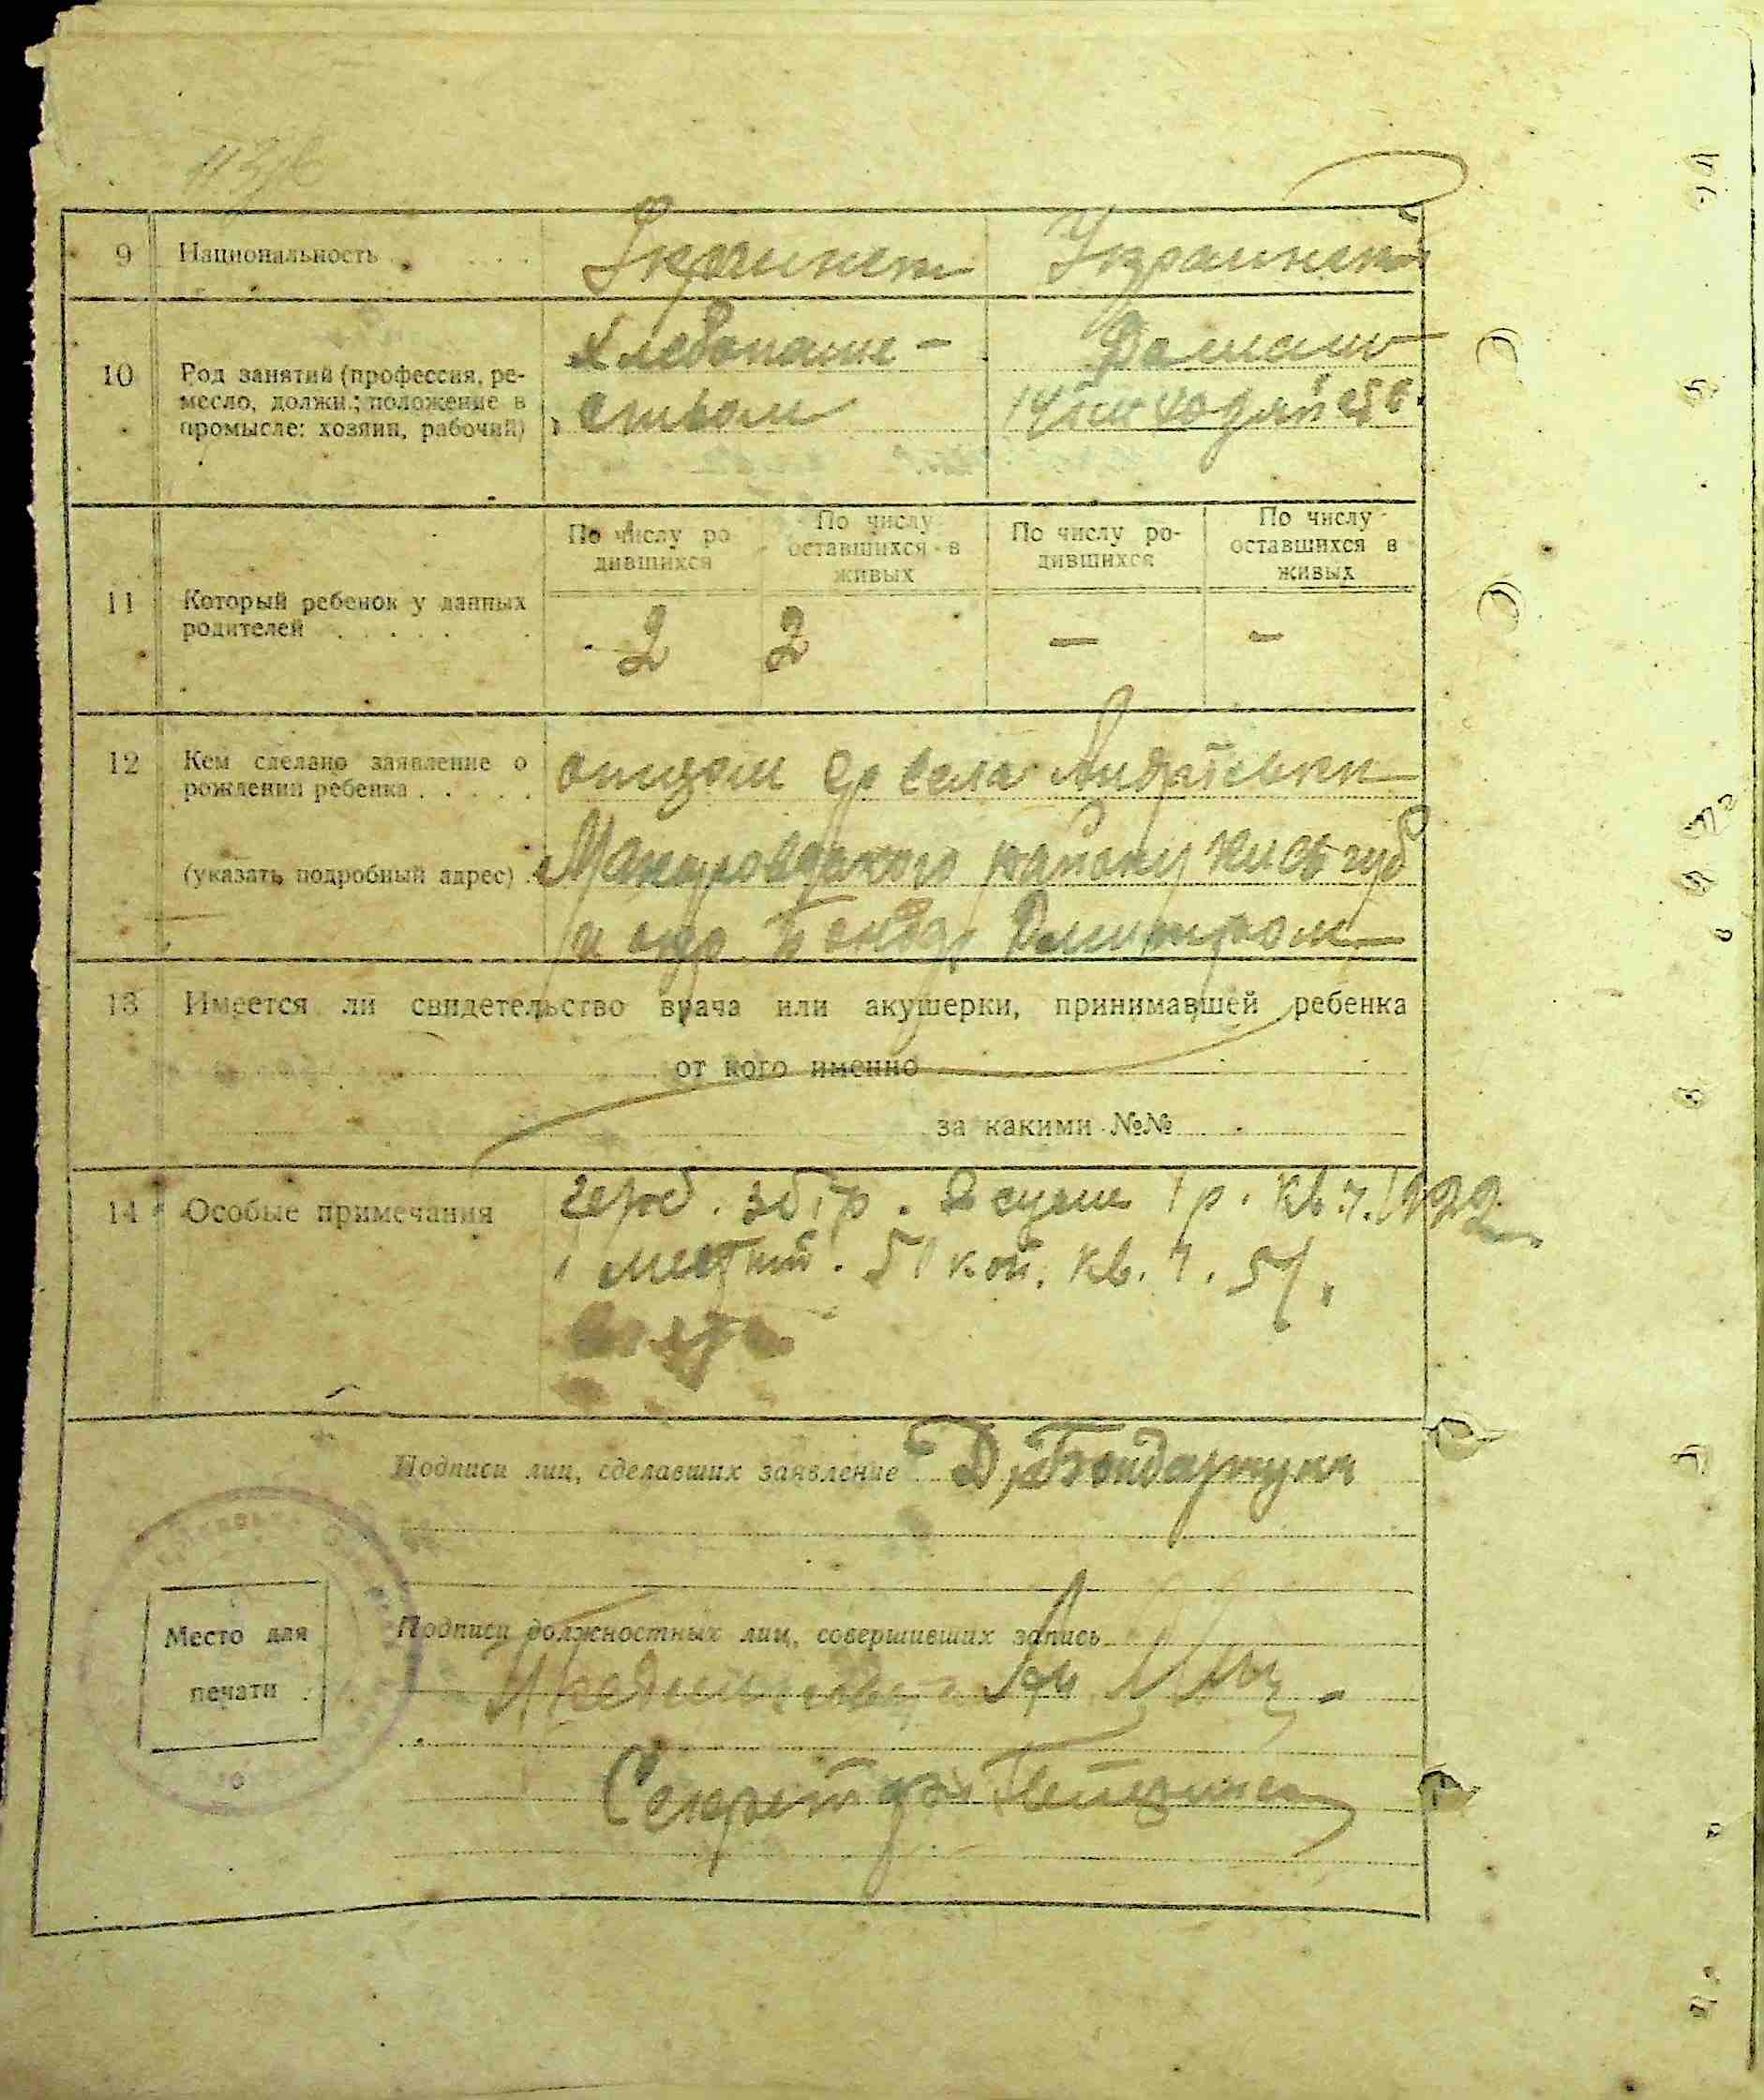 9 Национальность . . . . Украинст Украинст
10 Род занятий (профессия, ре-
месло, должн.; положение в
промысле: хозяин, рабочий)
Хлебопаше-
ством
Домашн
11 Который ребенок у данных
родителей . . . . .
По числу ро
дившихся
По числу
оставшихся в
живых
По числу ро-
дившихся
По числу
оставшихся в
живых
2 2 — —
12 Кем сделано заявление о
рождении ребенка . . . . .
(указать подробный адрес)
отцом села
Макаровского району Киев губ
Дмитром
13 Имеется ли свидетельство врача или акушерки, принимавшей ребенка
от кого именно
за какими №№
14 Особые примечания
герб. збір. 1 р. кв. ч. 1922
51 коп. кв. ч. 51.
Подписи лиц, сделавших заявление Д. Бондарчук
Место для
печати
Подписи должностных лиц, совершивших запись
Секретарь